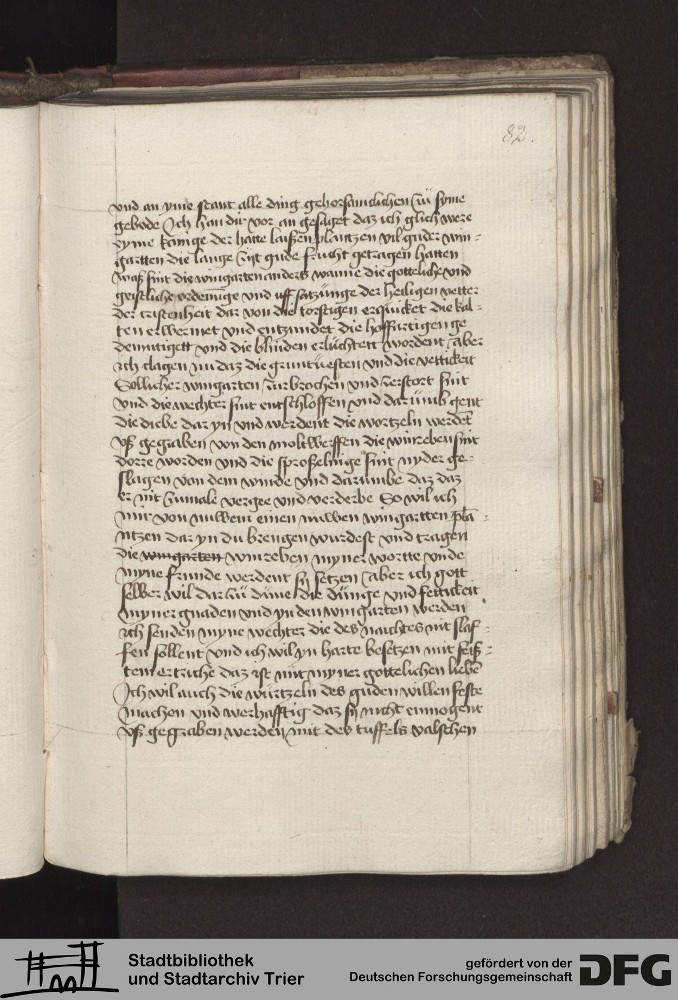 82.
vnd an yme stant alle ding gehorsamclichen zů syme
gebode Ich han dir vor an gesaget daz ich glich were
eyme konige der hatte laissen plantzen vil guder win-
gartten die lange zijt gude frucht getragen hatten
waß sint die wingarten anders wanne die gotteliche vnd
geistliche ordenunge vnd uff satzunge der heiligen vetter
der cristenheit dar von die torstigen erquicket die kal-
ten erwermet vnd entzundet die hoffartigen ge
demutigett vnd die blinden erluchtett wordent aber
ich clagen nu daz die gruntuesten vnd die vettickeit
Sollicher wingarten zurbrochen vnd zerstort sint
vnd die wechter sint entschloffen vnd dar umb gent
die diebe dar yn vnd werdent die wortzeln werdet
vß gegraben von den moltwerffen die winreben sint
dorre worden vnd die sproßelinge sint nyder ge-
slagen von dem winde vnd darumbe daz daz
er nit zumale vergee vnd verderbe So wil ich
mir von nuwem einen nuwen wingartten pla-
ntzen dar yn du brengen wurdest vnd tragen
die wingarten winreben myner wortte vnde
myne frunde werdent sij setzen aber ich gott
selber wil dar zů důne die důnge vnd fettickeit
myner gnaden vnd yn den wingarten werden
ich senden myne wechter die des nachtes nit slaf-
fen sollent vnd ich wil yn harte besetzen mit feiß-
tem ertriche daz ist mit myner gottelichen liebe
Ich wil auch die wurtzeln des guden willen feste
machen vnd werhafftig daz sij nicht enmogent
vß gegraben werden mit des tuffels valschen
Stadtbibliothek
und Stadtarchiv Trier
gefördert von der
Deutschen Forschungsgemeinschaft
DFG